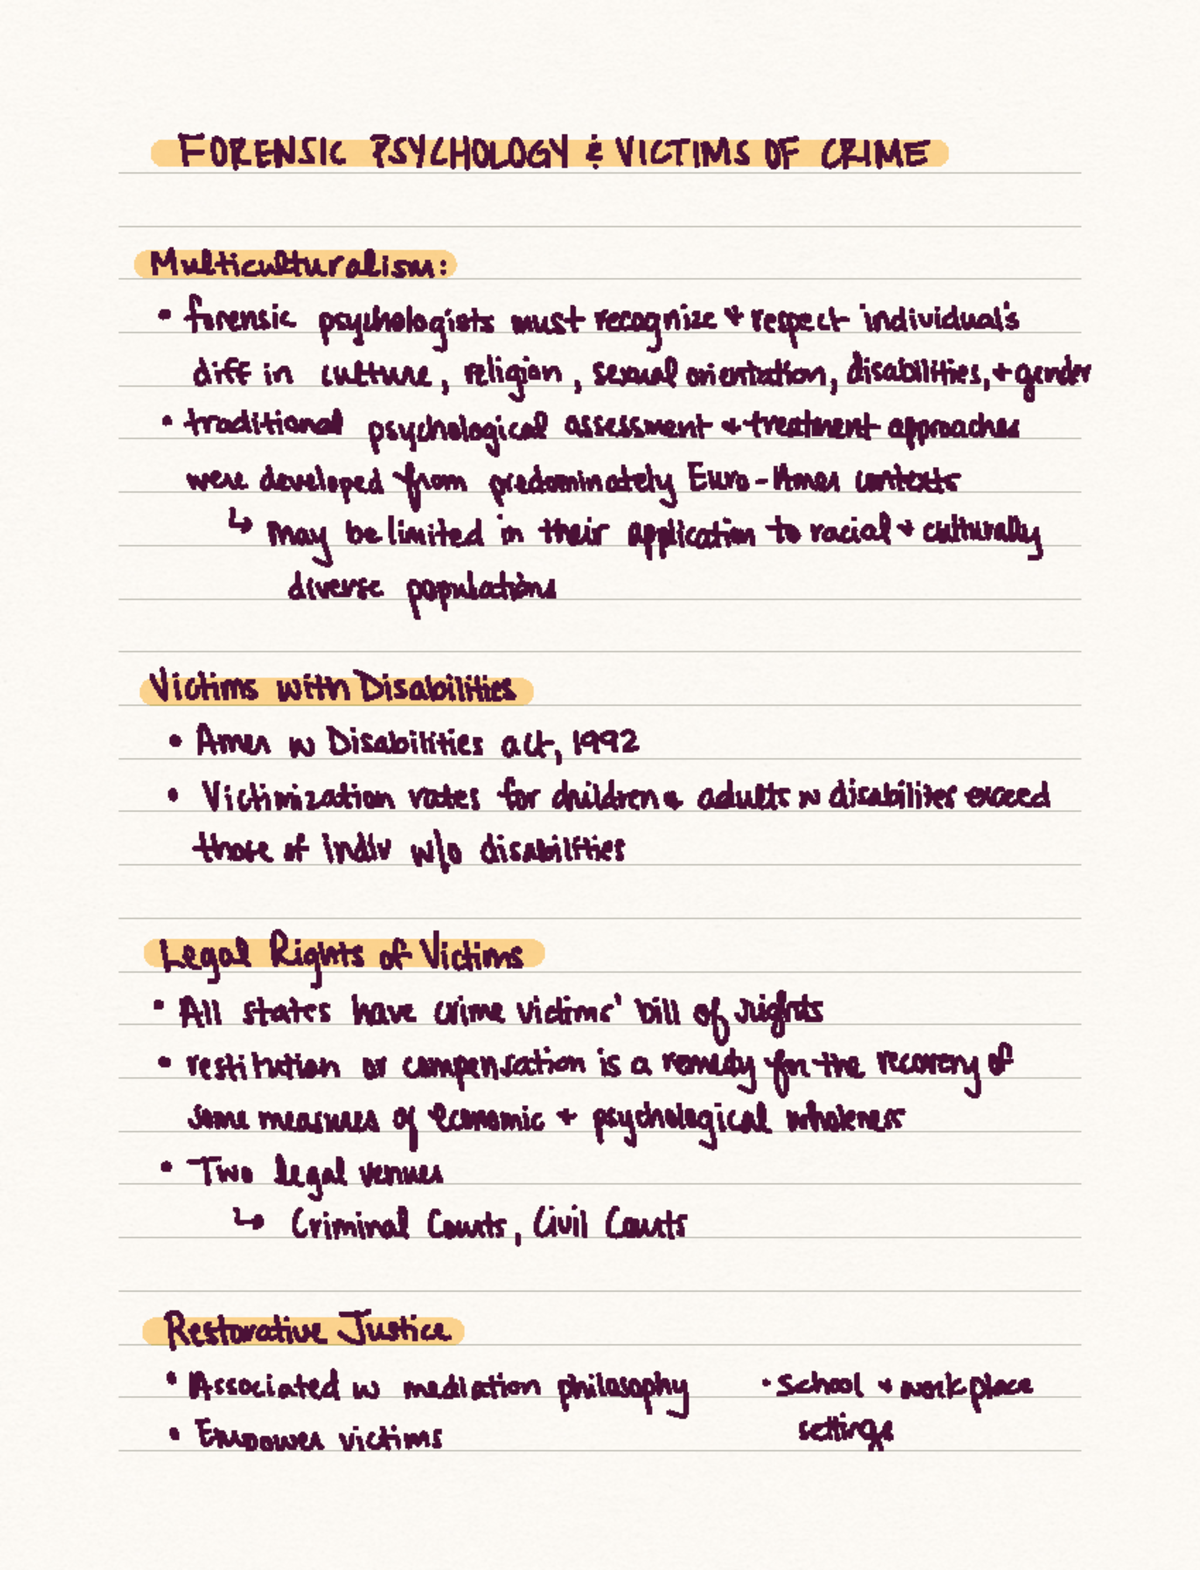 FORENSIC PSYCHOLOGY & VICTIMS OF CRIME
Multiculturalism:
• forensic psychologists must recognize + respect individual's
diff in culture, religion, sexual orientation, disabilities, + gender
• traditional psychological assessment + treatment approaches
were developed from predominately Euro-Amer contexts
↳ may be limited in their application to racial + culturally
diverse populations
Victims with Disabilities
• Amer w Disabilities act, 1992
• Victimization rates for children + adults w disabilities exceed
those of indiv w/o disabilities
Legal Rights of Victims
• All states have crime victims' bill of rights
• restitution or compensation is a remedy for the recovery of
some measures of economic + psychological wholeness
• Two legal venues
↳ Criminal Courts, Civil Courts
Restorative Justice
• Associated w mediation philosophy
• Empower victims
• School + workplace
settings